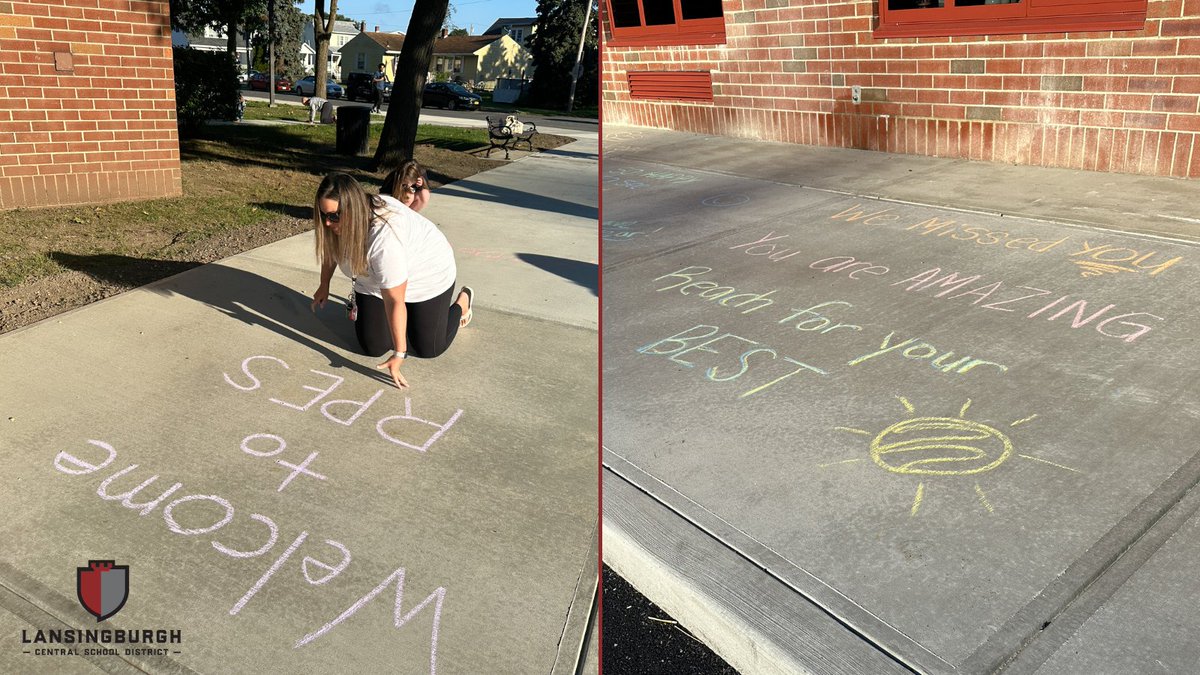 Welcome
to
RPES
LANSINGBURGH
CENTRAL SCHOOL DISTRICT
We Missed YOU
You are AMAZING
Reach for your
BEST